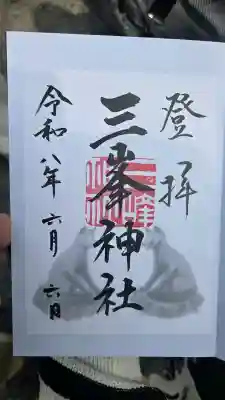 登拝
三峯神社
令和八年 六月 六日